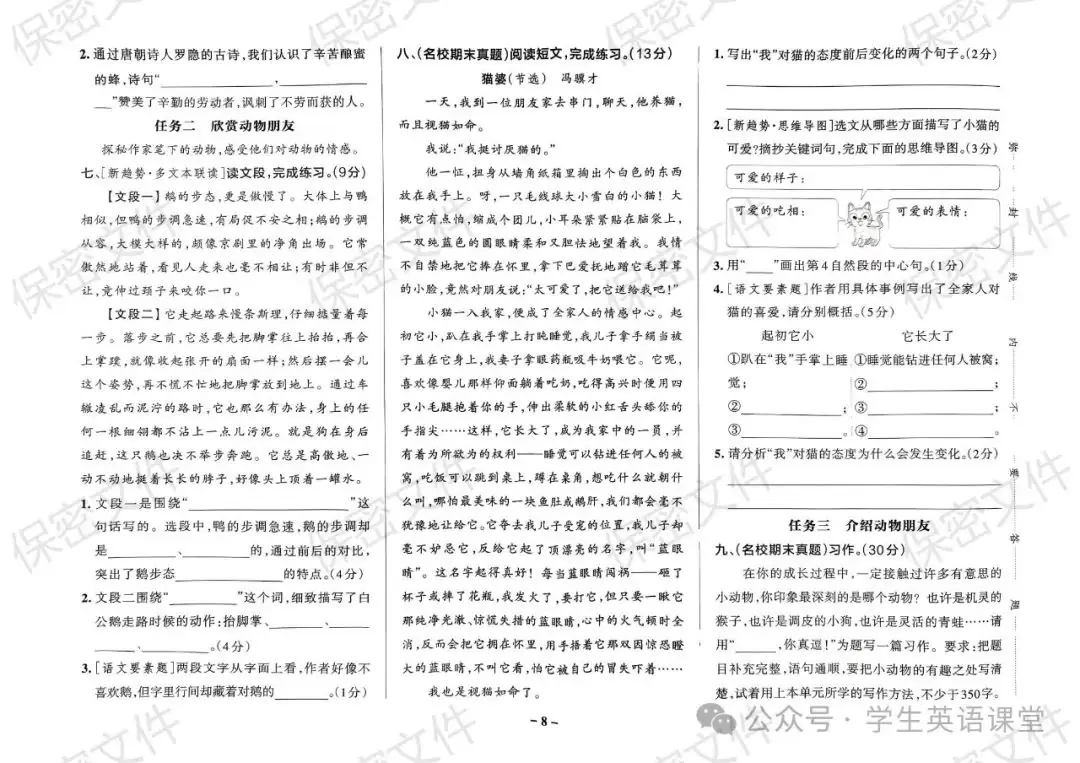 2.通过唐朝诗人罗隐的古诗,我们认识了辛苦酿蜜
的蜂,诗句“____,____
__”赞美了辛勤的劳动者,讽刺了不劳而获的人。
任务二 欣赏动物朋友
探秘作家笔下的动物,感受他们对动物的情感。
七、[新趋势·多文本联读]读文段,完成练习。(9分)
【文段一】鹅的步态,更是傲慢了。大体上与鸭
相似,但鸭的步调急速,有局促不安之相;鹅的步调
从容,大模大样的,颇像京剧里的净角出场。它常
傲然地站着,看见人走来也毫不相让;有时非但不
让,竟伸过颈子来咬你一口。
【文段二】它走起路来慢条斯理,仔细掂量着每
一步。落步之前,它总要先把脚掌往上抬抬,再合
上掌蹼,就像收起张开的扇面一样;然后摆一会儿
这个姿势,再不慌不忙地把脚掌放到地上。通过车
辙凌乱而泥泞的路时,它也那么有办法,身上的任
何一根细翎都不沾上一点儿污泥。就是狗在身后
追赶,这只鹅也决不举步奔跑。它总是高傲地、一
动不动地挺着长长的脖子,好像头上顶着一罐水。
1.文段一是围绕“____”这
句话写的。选段中,鸭的步调急速,鹅的步调却
是____、____的,通过前后的对比,
突出了鹅步态____的特点。(4分)
2.文段二围绕“____”这个词,细致描写了白
公鹅走路时候的动作:抬脚掌、____、____、
____、____。(4分)
3.[语文要素题]两段文字从字面上看,作者好像不
喜欢鹅,但字里行间却藏着对鹅的____。(1分)
八、(名校期末真题)阅读短文,完成练习。(13分)
猫婆(节选) 冯骥才
一天,我到一位朋友家去串门,聊天,他养猫,
而且视猫如命。
我说:“我挺讨厌猫的。”
他一怔,扭身从墙角纸箱里掏出个白色的东西
放在我手上。呀,一只毛线球大小雪白的小猫!大
概它有点怕,缩成个团儿,小耳朵紧紧贴在脑袋上,
一双纯蓝色的圆眼睛柔和又胆怯地望着我。我情
不自禁地把它捧在怀里,拿下巴爱抚地蹭它毛茸茸
的小脸,竟然对朋友说:“太可爱了,把它送给我吧!”
小猫一入我家,便成了全家人的情感中心。起
初它小,趴在我手掌上打盹睡觉,我儿子拿手绢当被
子盖在它身上,我妻子拿眼药瓶吸牛奶喂它。它呢,
喜欢像婴儿那样仰面躺着吃奶,吃得高兴时便用四
只小毛腿抱着你的手,伸出柔软的小红舌头舔你的
手指尖……这样,它长大了,成为我家中的一员,并
有着为所欲为的权利——睡觉可以钻进任何人的被
窝,吃饭可以跳到桌上,蹲在桌角,想吃什么就朝什
么叫,哪怕最美味的一块鱼肚或鹅肝,我们都会毫不
犹豫地让给它。它夺去我儿子受宠的位置,我儿子却
毫不妒忌它,反给它起了顶漂亮的名字,叫“蓝眼
睛”。这名字起得真好!每当蓝眼睛闯祸——砸了
杯子或摔了花瓶,我发火了,要打它,但只要一瞅它
那纯净光澈、惊慌失措的蓝眼睛,心中的火气顿时全
消,反而会把它拥在怀里,用手捂着它那双因惊恐瞪
大的蓝眼睛,不叫它看,怕它被自己的冒失吓着……
我也是视猫如命了。
1.写出“我”对猫的态度前后变化的两个句子。(2分)
2.[新趋势·思维导图]选文从哪些方面描写了小猫的
可爱?摘抄关键词句,完成下面的思维导图。(3分)
可爱的样子:
可爱的吃相:
可爱的表情:
3.用“____”画出第4自然段的中心句。(1分)
4.[语文要素题]作者用具体事例写出了全家人对
猫的喜爱,请分别概括。(5分)
起初它小 它长大了
①趴在“我”手掌上睡 ①睡觉能钻进任何人被窝;
觉; ②____;
②____; ③____;
③____。 ④____。
5.请分析“我”对猫的态度为什么会发生变化。(2分)
任务三 介绍动物朋友
九、(名校期末真题)习作。(30分)
在你的成长过程中,一定接触过许多有意思的
小动物,你印象最深刻的是哪个动物?也许是机灵的
猴子,也许是调皮的小狗,也许是灵活的青蛙……请
用“____,你真逗!”为题写一篇习作。要求:把题
目补充完整,语句通顺,要把小动物的有趣之处写清
楚,试着用上本单元所学的写作方法,不少于350字。
密
封
线
内
不
要
答
题
-8-
公众号·学生英语课堂
保密文件